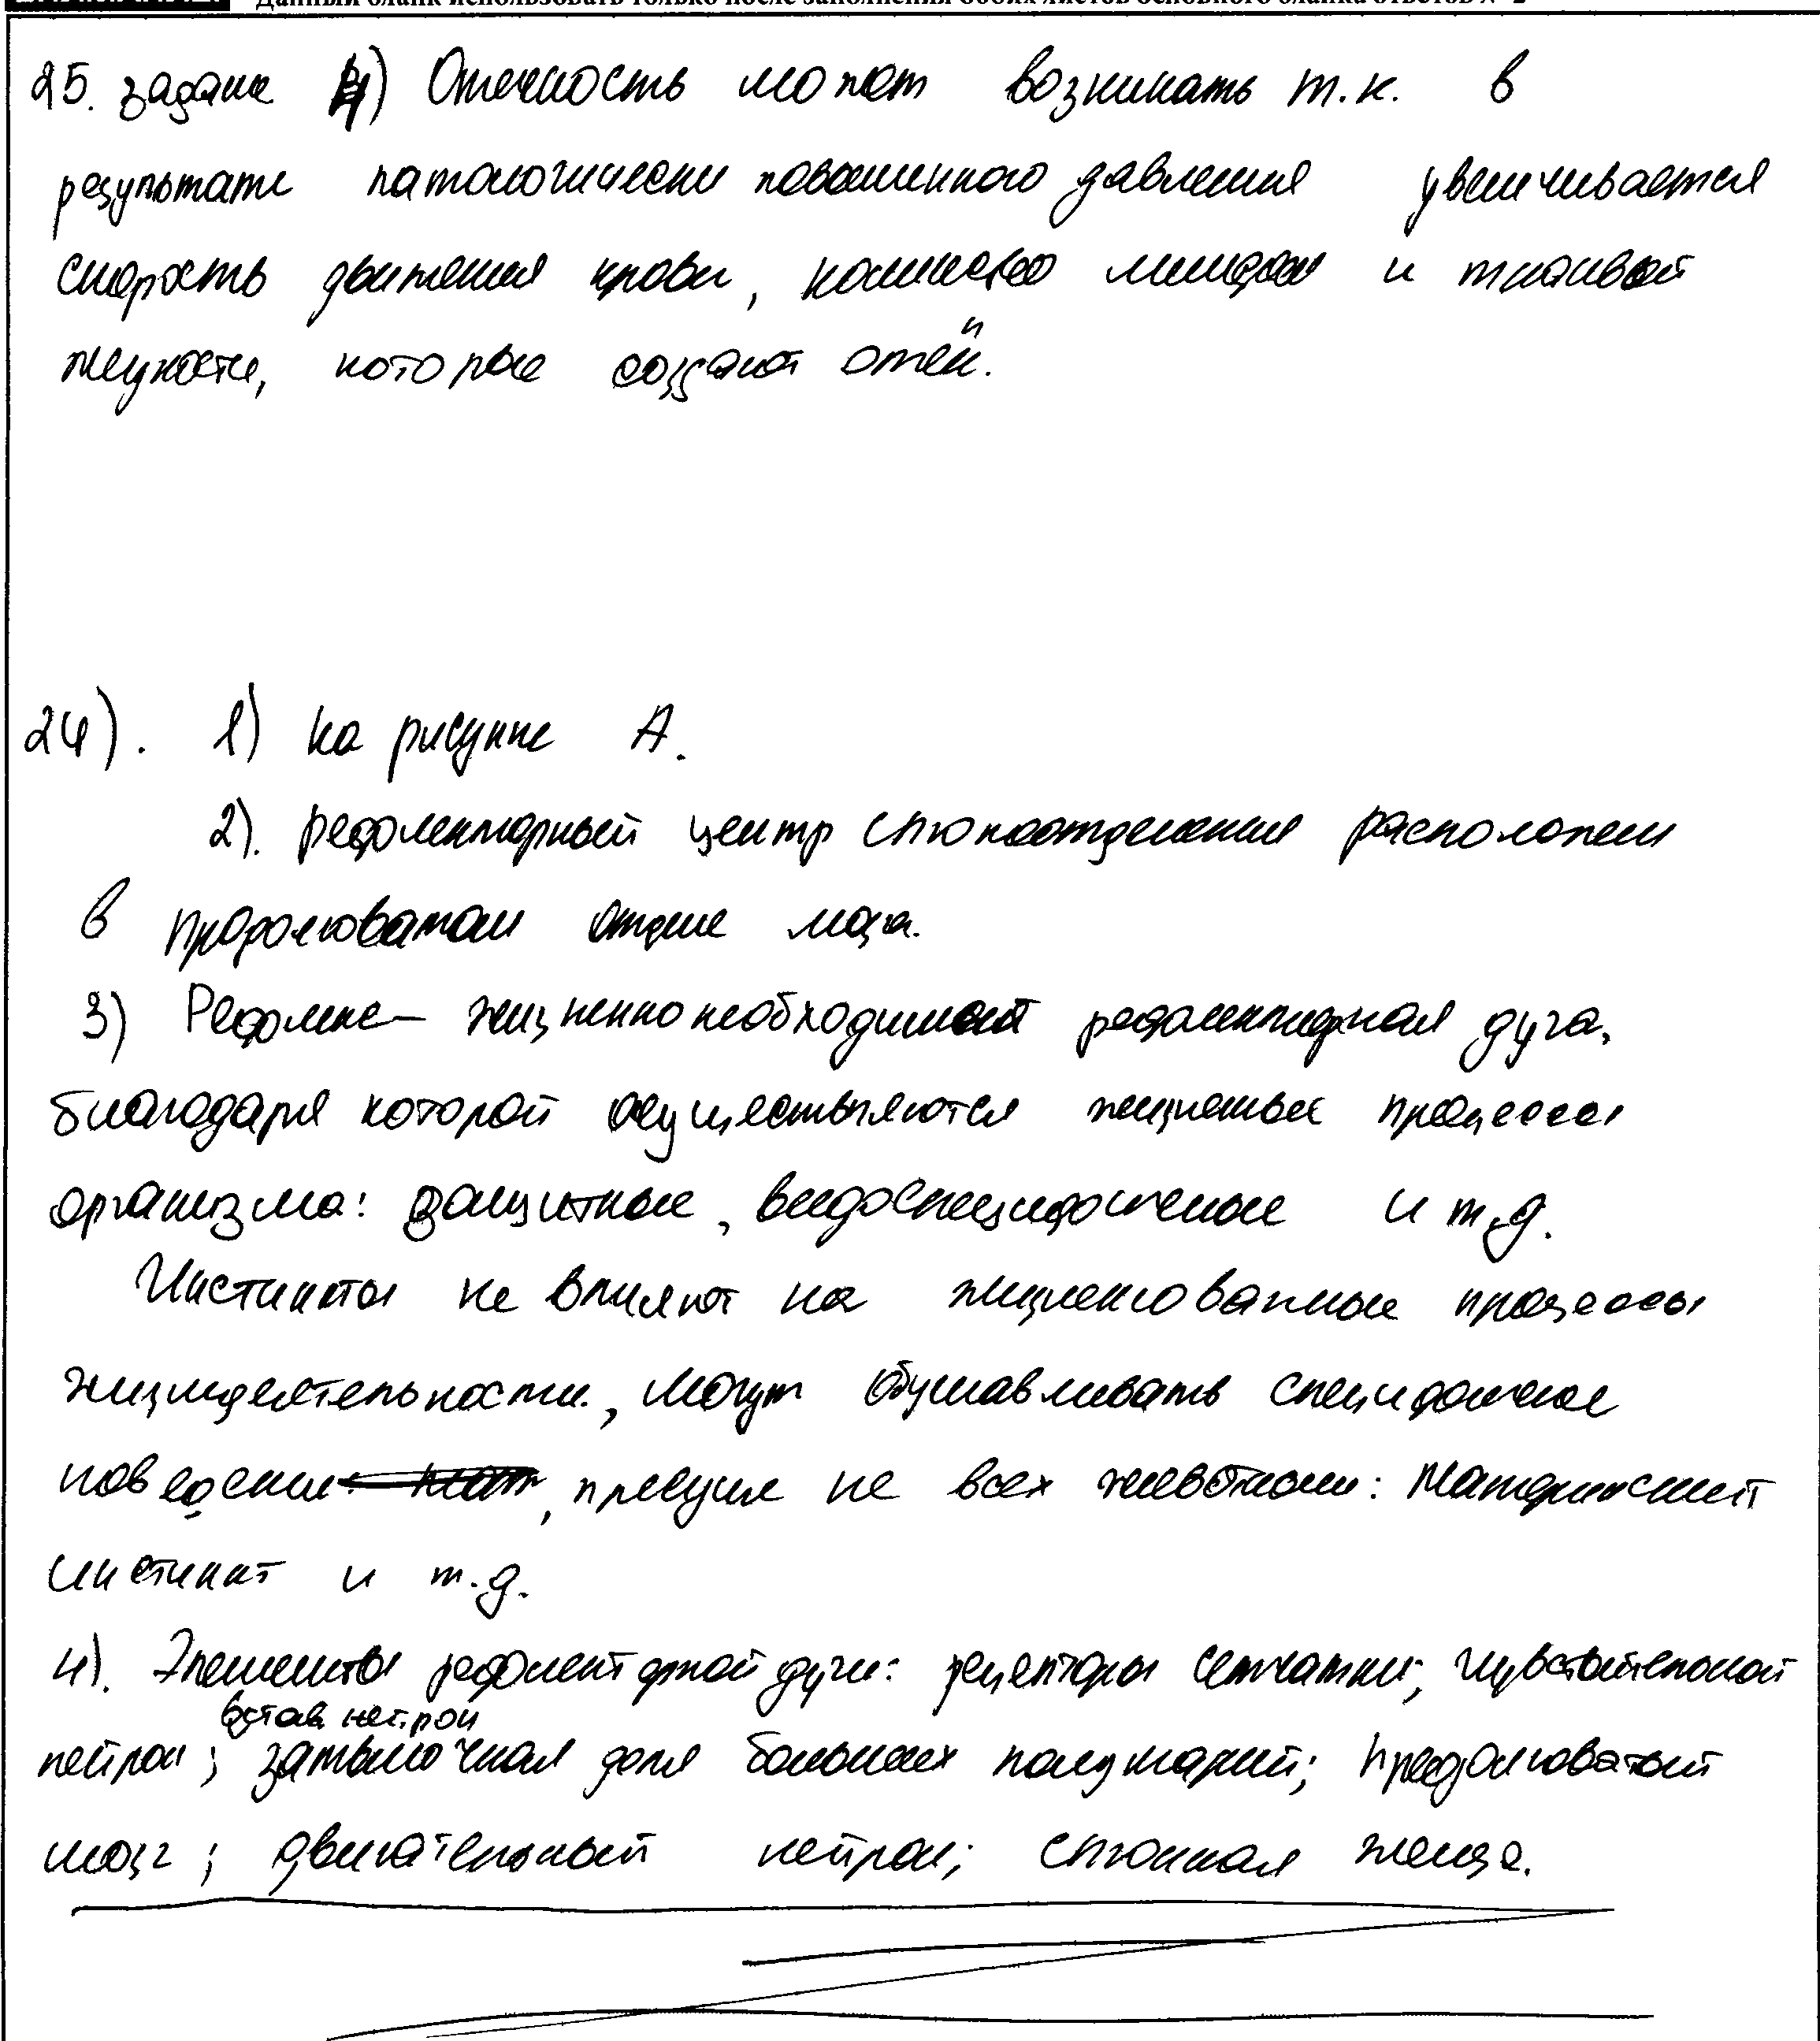 Данный бланк использовать только после заполнения обоих листов основного бланка ответов № 2
25. задание 4) Отечность может возникать т.к. в
результате патологически повышенного давления увеличивается
скорость движения крови, количество лимфы и тканевой
жидкости, которые создают отёки.
24). 1) на рисунке А.
2). рефлекторный центр слюноотделения расположен
в продолговатом отделе мозга.
3) Рефлекс – жизненно необходимая рефлекторная дуга,
благодаря которой осуществляются жизненные процессы
организма: защитные, видоспецифичные и т.д.
Инстинкты не влияют на жизненоважные процессы
жизнидеятельности, могут обуславливать специфичное
поведение, присущие не всех животным: Материнский
инстинкт и т.д.
4). Элементы рефлекторной дуги: рецепторы сетчатки; чувствительный
встав. нейрон
нейрон; затылочная доля больших полушарий; продолговатый
мозг; двигательный нейрон; слюнная железа.